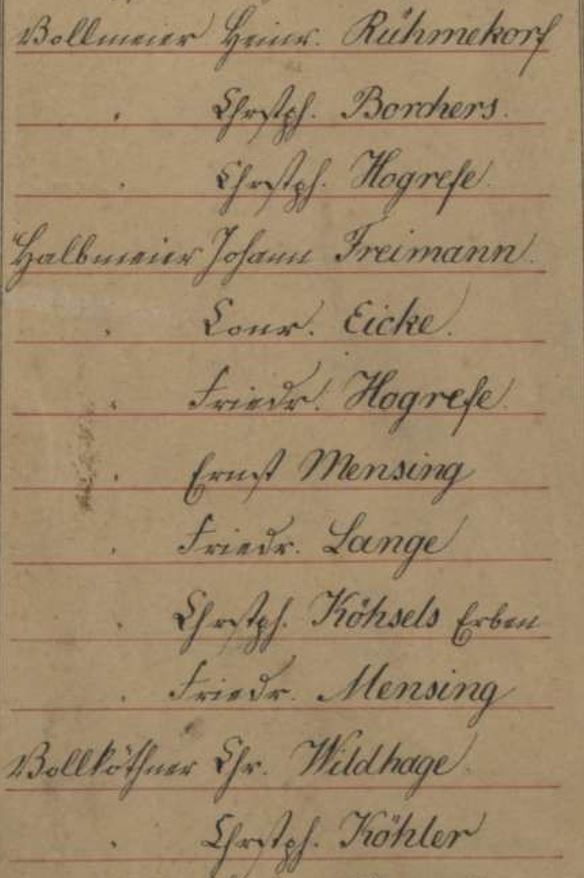 Vollmeier Heinr. Rühmekorf
" Chrstph. Borchers.
" Chrstph. Hogrefe.
Halbmeier Johann Freimann.
" Conr. Eicke.
" Friedr. Hogrefe.
" Ernst Mensing
" Friedr. Lange
" Chrstph. Köhsels Erben
" Friedr. Mensing
Vollköthner Chr. Wildhage.
" Chrstph. Köhler